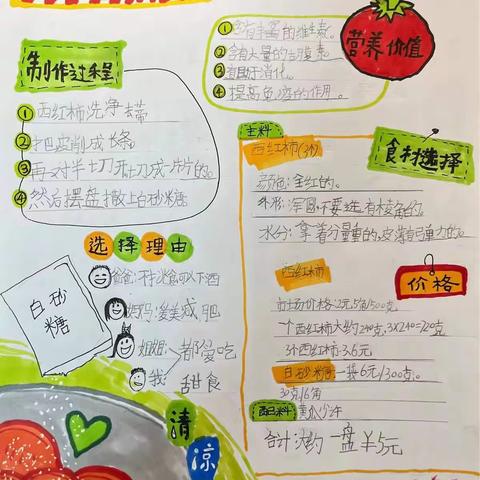 制作过程
①西红柿洗净去蒂
②把皮削成长条
③再对半切开切成片片的。
④然后摆盘撒上白砂糖
选择理由
爸爸:冰冰食可以下酒
妈妈:爱美减肥
姐姐:都爱吃
我:甜食
白砂糖
清凉
①含有丰富的维生素。
②含有大量的胡萝素
③有助于消化。
④提高免疫的作用。
营养价值
主料
西红柿(3个)
食材选择
颜色:全红的。
外形:浑圆,不要选有棱角的
水分:拿着分量重的,皮薄有弹力的。
西红柿
价格
市场价格:2元5角/500克
一个西红柿大约240克,3×240=720克
3个西红柿3.6元
白砂糖:一袋6元/300克。
30克/6角
配料
合计:大约一盘¥5元